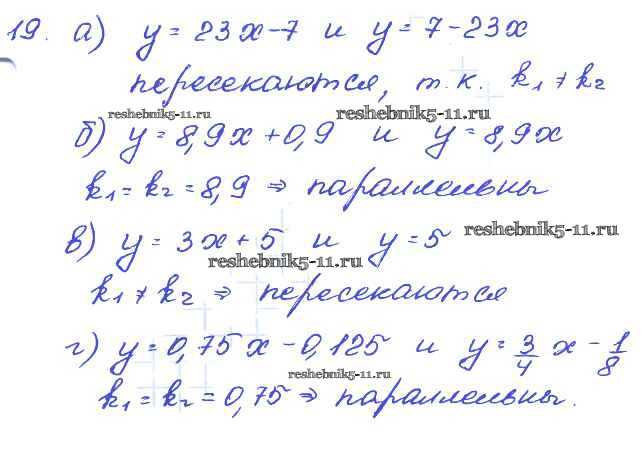 19. а) y = 23x - 7 и y = 7 - 23x
пересекаются, т.к. k₁ ≠ k₂
reshebnik5-11.ru reshebnik5-11.ru
б) y = 8,9x + 0,9 и y = 8,9x
k₁ = k₂ = 8,9 ⇒ параллельны
в) y = 3x + 5 и y = 5 reshebnik5-11.ru
reshebnik5-11.ru
k₁ ≠ k₂ ⇒ пересекаются
г) y = 0,75x - 0,125 и y = 3/4 x - 1/8
reshebnik5-11.ru
k₁ = k₂ = 0,75 ⇒ параллельны.